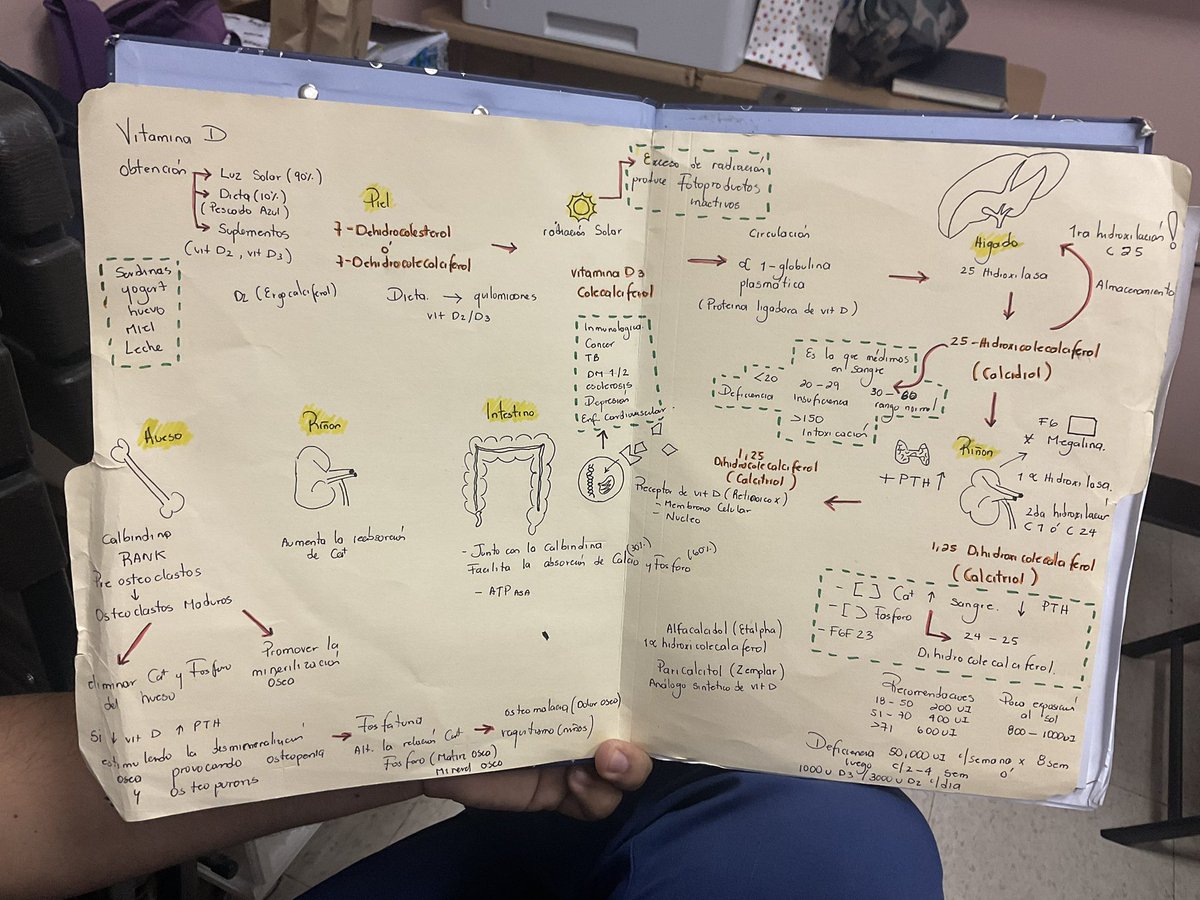 Vitamina D
Obtención
Luz Solar (90%)
Dieta (10%)
(Pescado Azul)
Suplementos
(vit D2, vit D3)
Sardinas
yogurt
huevo
Miel
Leche
Piel
7-Dehidrocolesterol
ó
7-Dehidrocolecalciferol
D2 (Ergocalciferol)
Dieta. → quilomicones
vit D2/D3
radiación Solar
Exceso de radiación
produce Fotoproductos
inactivos
vitamina D3
Colecalciferol
Circulación
α 1-globulina
plasmática
(Proteina ligadora de vit D)
Hígado
25 Hidroxilasa
1ra hidroxilación
C 25
Almacenamiento
25-Hidroxicolecalciferol
(Calcidiol)
Es lo que médimos
en sangre
<20
Deficiencia
20-29
Insuficiencia
30-60
rango normal
>150
Intoxicación
Riñon
F6
* Megalina.
1α Hidroxilasa.
2da hidroxilación
C1 ó C24
+ PTH ↑
1,25 Dihidroxicolecalciferol
(Calcitriol)
- [ ] Cat ↑ Sangre. ↓ PTH
- [ ] Fosforo
- F6F 23
24-25
Dihidrocolecalciferol.
1,25
Dihidrocolecalciferol
(Calcitriol)
Receptor de vit D (Retinoico x)
- Membrana Celular
- Nucleo
Inmunologica
Cancer
TB
DM 1/2
esclerosis
Depresión
Enf. Cardiovascular
Intestino
- Junto con la calbindina
Facilita la absorción de Calcio (30%) y Fosforo (60%)
- ATPasa
Riñon
Aumenta la reabsorción
de Cat
Hueso
Calbindina
RANK
Pre osteoclastos
↓
Osteoclastos Maduros
eliminar Cat y Fosforo
del hueso
Promover la
minerilización
osco
Si ↓ vit D ↑ PTH
estimulando la desmineralización
osco provocando osteopenia
y osteoporosis
Fosfaturia
Alt. la relación Cat
Fosforo (Matriz osco)
Mineral osco
osteomalacia (Dolor osco)
raquitismo (niños)
Alfacalcidol (Etalpha)
1α hidroxicolecalciferol
Paricalcitol (Zemplar)
Análogo sintético de vit D
Recomendaciones
18-50 200 UI
51-70 400 UI
>71 600 UI
Poca exposición
al sol
800-1000 UI
Deficiencia 50,000 UI c/semana x 8 sem
luego c/2-4 sem ó
1000 u D3 / 3000 u D2 c/dia